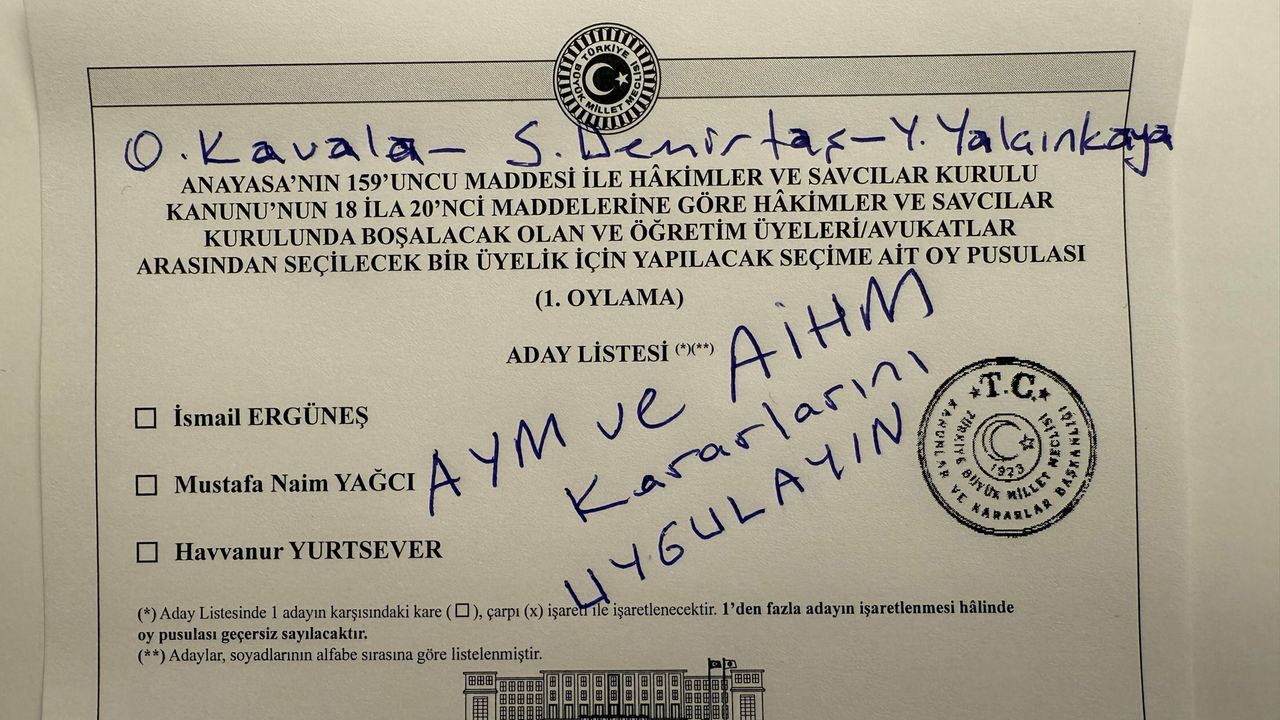 TÜRKİYE BÜYÜK MİLLET MECLİSİ
O. Kavala - S. Demirtaş - Y. Yalçınkaya
ANAYASA’NIN 159’UNCU MADDESİ İLE HÂKİMLER VE SAVCILAR KURULU
KANUNU’NUN 18 İLA 20’NCİ MADDELERİNE GÖRE HÂKİMLER VE SAVCILAR
KURULUNDA BOŞALACAK OLAN VE ÖĞRETİM ÜYELERİ/AVUKATLAR
ARASINDAN SEÇİLECEK BİR ÜYELİK İÇİN YAPILACAK SEÇİME AİT OY PUSULASI
(1. OYLAMA)
ADAY LİSTESİ (*)(**)
☐ İsmail ERGÜNEŞ
☐ Mustafa Naim YAĞCI
☐ Havvanur YURTSEVER
AYM ve AİHM
Kararlarını
UYGULAYIN
T.C.
TÜRKİYE BÜYÜK MİLLET MECLİSİ
KANUNLAR VE KARARLAR BAŞKANLIĞI
1923
(*) Aday Listesinde 1 adayın karşısındaki kare (☐), çarpı (x) işareti ile işaretlenecektir. 1’den fazla adayın işaretlenmesi hâlinde
oy pusulası geçersiz sayılacaktır.
(**) Adaylar, soyadlarının alfabe sırasına göre listelenmiştir.